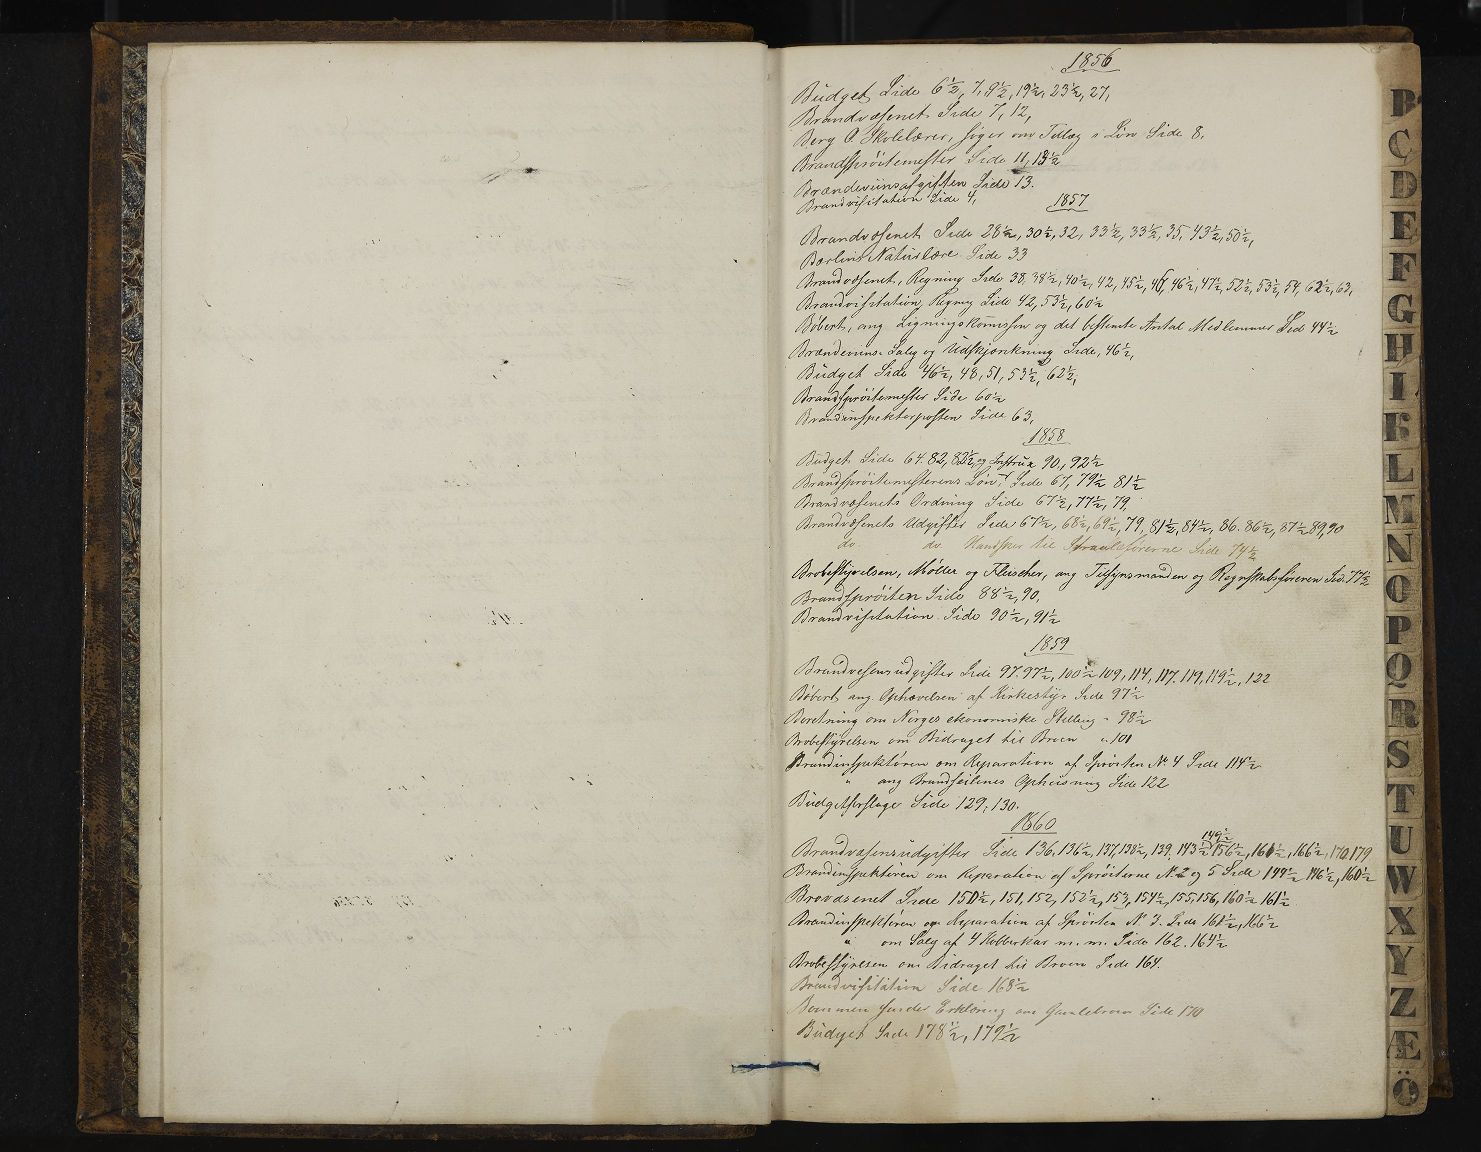 1856
Budget Side 6½, 7, 9½, 19½, 23½, 27,
Brandvæsenet Side 7, 12,
Berg O. Skolelærer, søger om Tillæg i Løn Side 8.
Brandsprøitemester Side 11, 13½
Brændeviinsafgiften Side 13.
Brandvisitation Side 4,
1857
Brandvæsenet Side 28½, 30½, 32, 33½, 33½, 35, 43½, 50½,
Naturlære Side 33
Brandvæsenet, Regning Side 38, 38½, 40½, 42, 45½, 46, 46½, 47½, 52½, 53½, 54, 62½, 63,
Brandvisitation, Side 42, 53½, 60½
Bøbert, ang Ligningskommissen og det bestemte Antal Medlemmer Sid 44½
Brændeviins Salg og Udskjænkning Side, 46½,
Budget Side 46½, 48, 51, 53½, 62½,
Brandsprøitemester Side 60½
Brandinspektørposten Side 63,
1858
Budget Side 64. 82, 82½, og Instrux 90, 92½
Brandsprøitemesterens Løn, Side 67, 79½ 81½
Brandvæsenets Ordning Side 67½, 77½, 79,
Brandvæsenets Udgifter Side 67½, 68½, 69½, 79, 81½, 84½, 86. 86½, 87½ 89, 90
do do Handsker til Straaleførerne Side 74½
Brobestyrelsen, Møller og Fleischer, ang Tilsynsmanden og Regnskabsføreren Sid. 77½
Brandsprøiten Side 88½, 90,
Brandvisitation Side 90½, 91½
1859
Brandvesensudgifter Side 97. 97½, 100½ 109, 114, 117. 119, 119½, 122
Bøbert, ang. Ophævelsen af Kirkestyr Side 97½
Beretning om Norges økonomiske Stilling " 98½
Brobestyrelsen om Bidraget til Broen " 101
Brandinspektøren om Reparation af Sprøiten № 4 Side 114½
" ang Brandseilenes Ophiisning Side 122
Budgetforslage Side 129, 130.
1860
149½
Brandvæsensudgifter Side 136, 136½, 137, 138½, 139, 143½ 156½, 161½, 166½, 170. 179
Brandinspektøren om Reparation af Sprøiterne № 2 og 5 Side 144½ 146½, 160½
Brovæsenet Side 150½, 151, 152, 152½, 153, 154½, 155, 156, 160½ 161½
Brandinspektøren om Reparation af Sprøiten № 3. Side 161½, 166½
" om Salg af 4 Kobberkar m. m. Side 162. 164½
Brobestyrelsen om Bidraget til Broen Side 164.
Brandvisitation Side 168½
Bommen under Erklæring om Gamlebroen Side 170
Budget Side 178½, 179½
B
C
D
E
F
G
H
I
K
L
M
N
O
P
Q
R
S
T
U
W
X
Y
Z
Æ
Ö